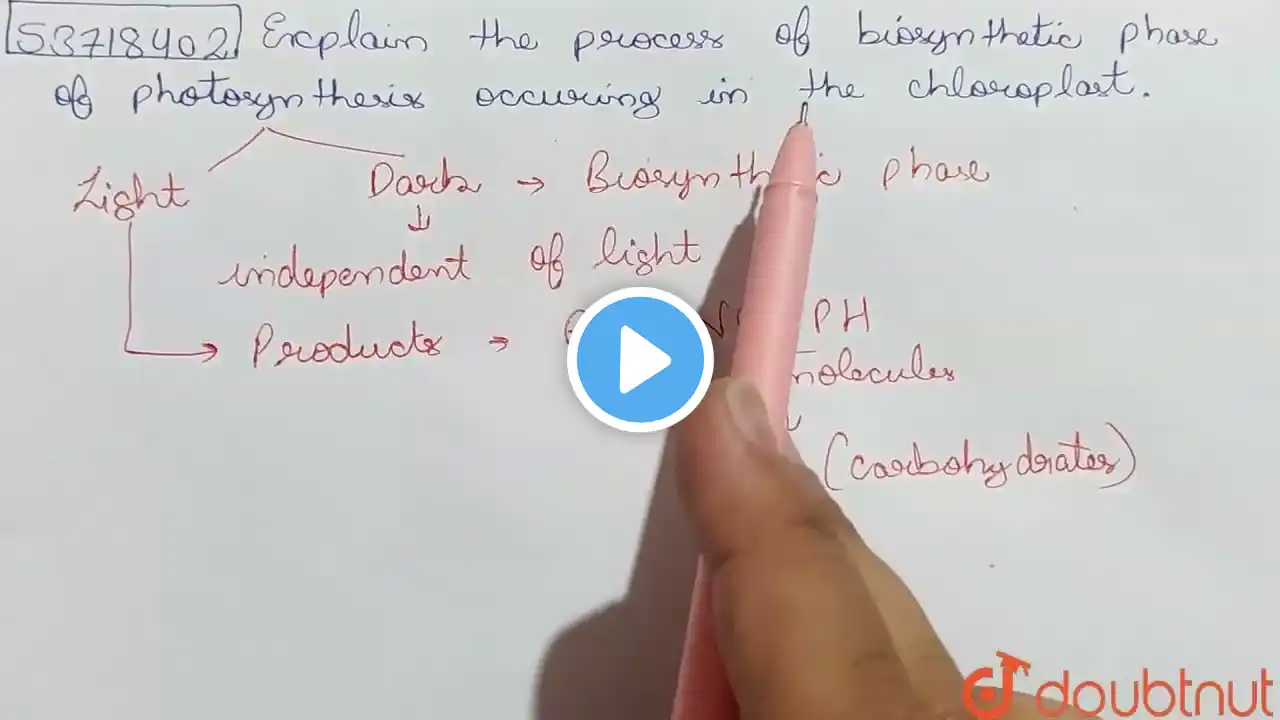 53718402 Explain the process of biosynthetic phase
of photosynthesis occuring in the chloroplast.
Light Dark → Biosynthetic phase
↓
independent of light
→ Products → PH
molecules
(carbohydrates)
doubtnut